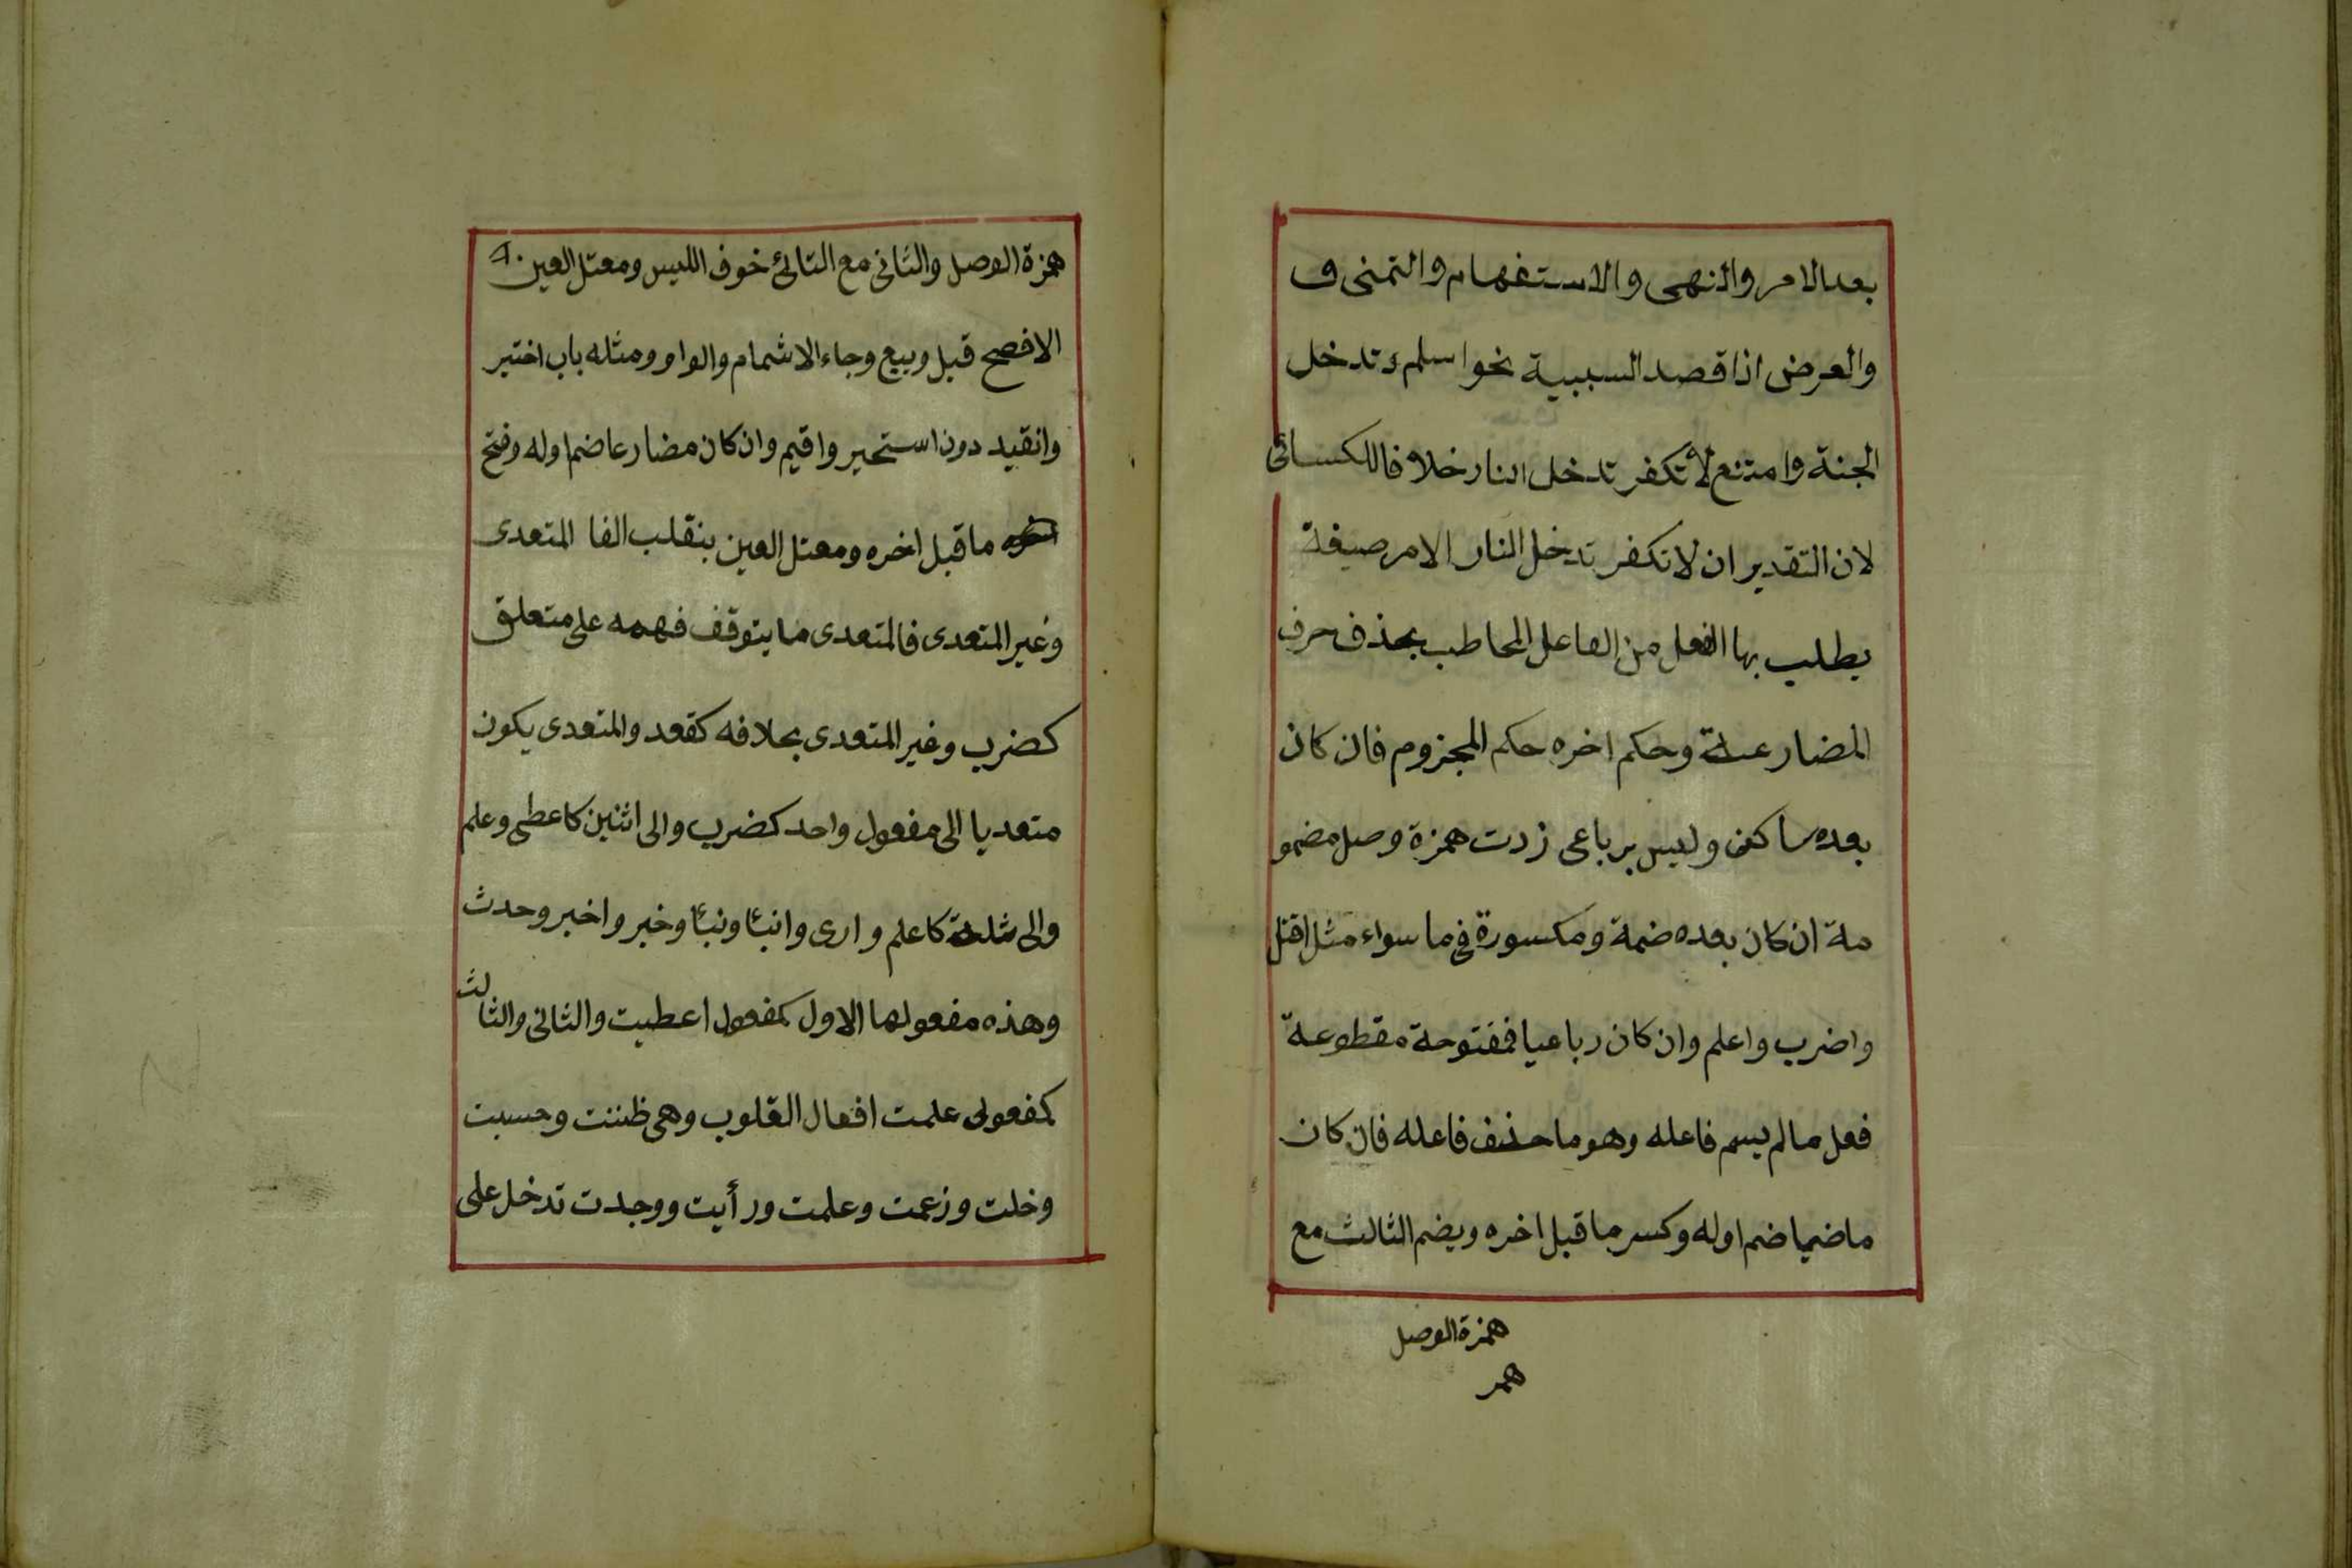 بعد الامر والنهى والاستفهام والتمنى و
والعرض اذا قصد السببية نحو اسلم تدخل
الجنة وامتنع لا تكفر تدخل النار خلافا للكسائى
لان التقدير ان لا تكفر تدخل النار الامر صيغة
يطلب بها الفعل من الفاعل المخاطب بحذف حرف
المضارعة وحكم اخره حكم المجزوم فان كان
بعده ساكن وليس برباعى زدت همزة وصل مضمو
مة ان كان بعده ضمة ومكسورة فى ما سواء مثل اقتل
واضرب واعلم وان كان رباعيا ففتوحة مقطوعة
فعل مالم يسم فاعله وهو ما حذف فاعله فان كان
ماضيا ضم اوله وكسر ما قبل اخره ويضم الثالث مع
همزة الوصل
همز
همزة الوصل والثانى مع التائ خوف اللبس ومعتل العين
الافصح قيل وبيع وجاء الاشمام والواو ومثله باب اختير
وانقيد دون استخير واقيم وان كان مضارعا ضم اوله وفتح
ما قبل اخره ومعتل العين ينقلب الفا المتعدى
وغير المتعدى فالمتعدى ما يتوقف فهمه على متعلق
كضرب وغير المتعدى بخلافه كقعد والمتعدى يكون
متعديا الى مفعول واحد كضرب والى اثنين كاعطى وعلم
والى ثلثة كاعلم وارى وانبئا ونبئا وخبر واخبر وحدث
وهذه مفعولها الاول كمفعول اعطيت والثانى والثالث
كمفعولى علمت افعال القلوب وهى ظننت وحسبت
وخلت وزعمت وعلمت ورأيت ووجدت تدخل على